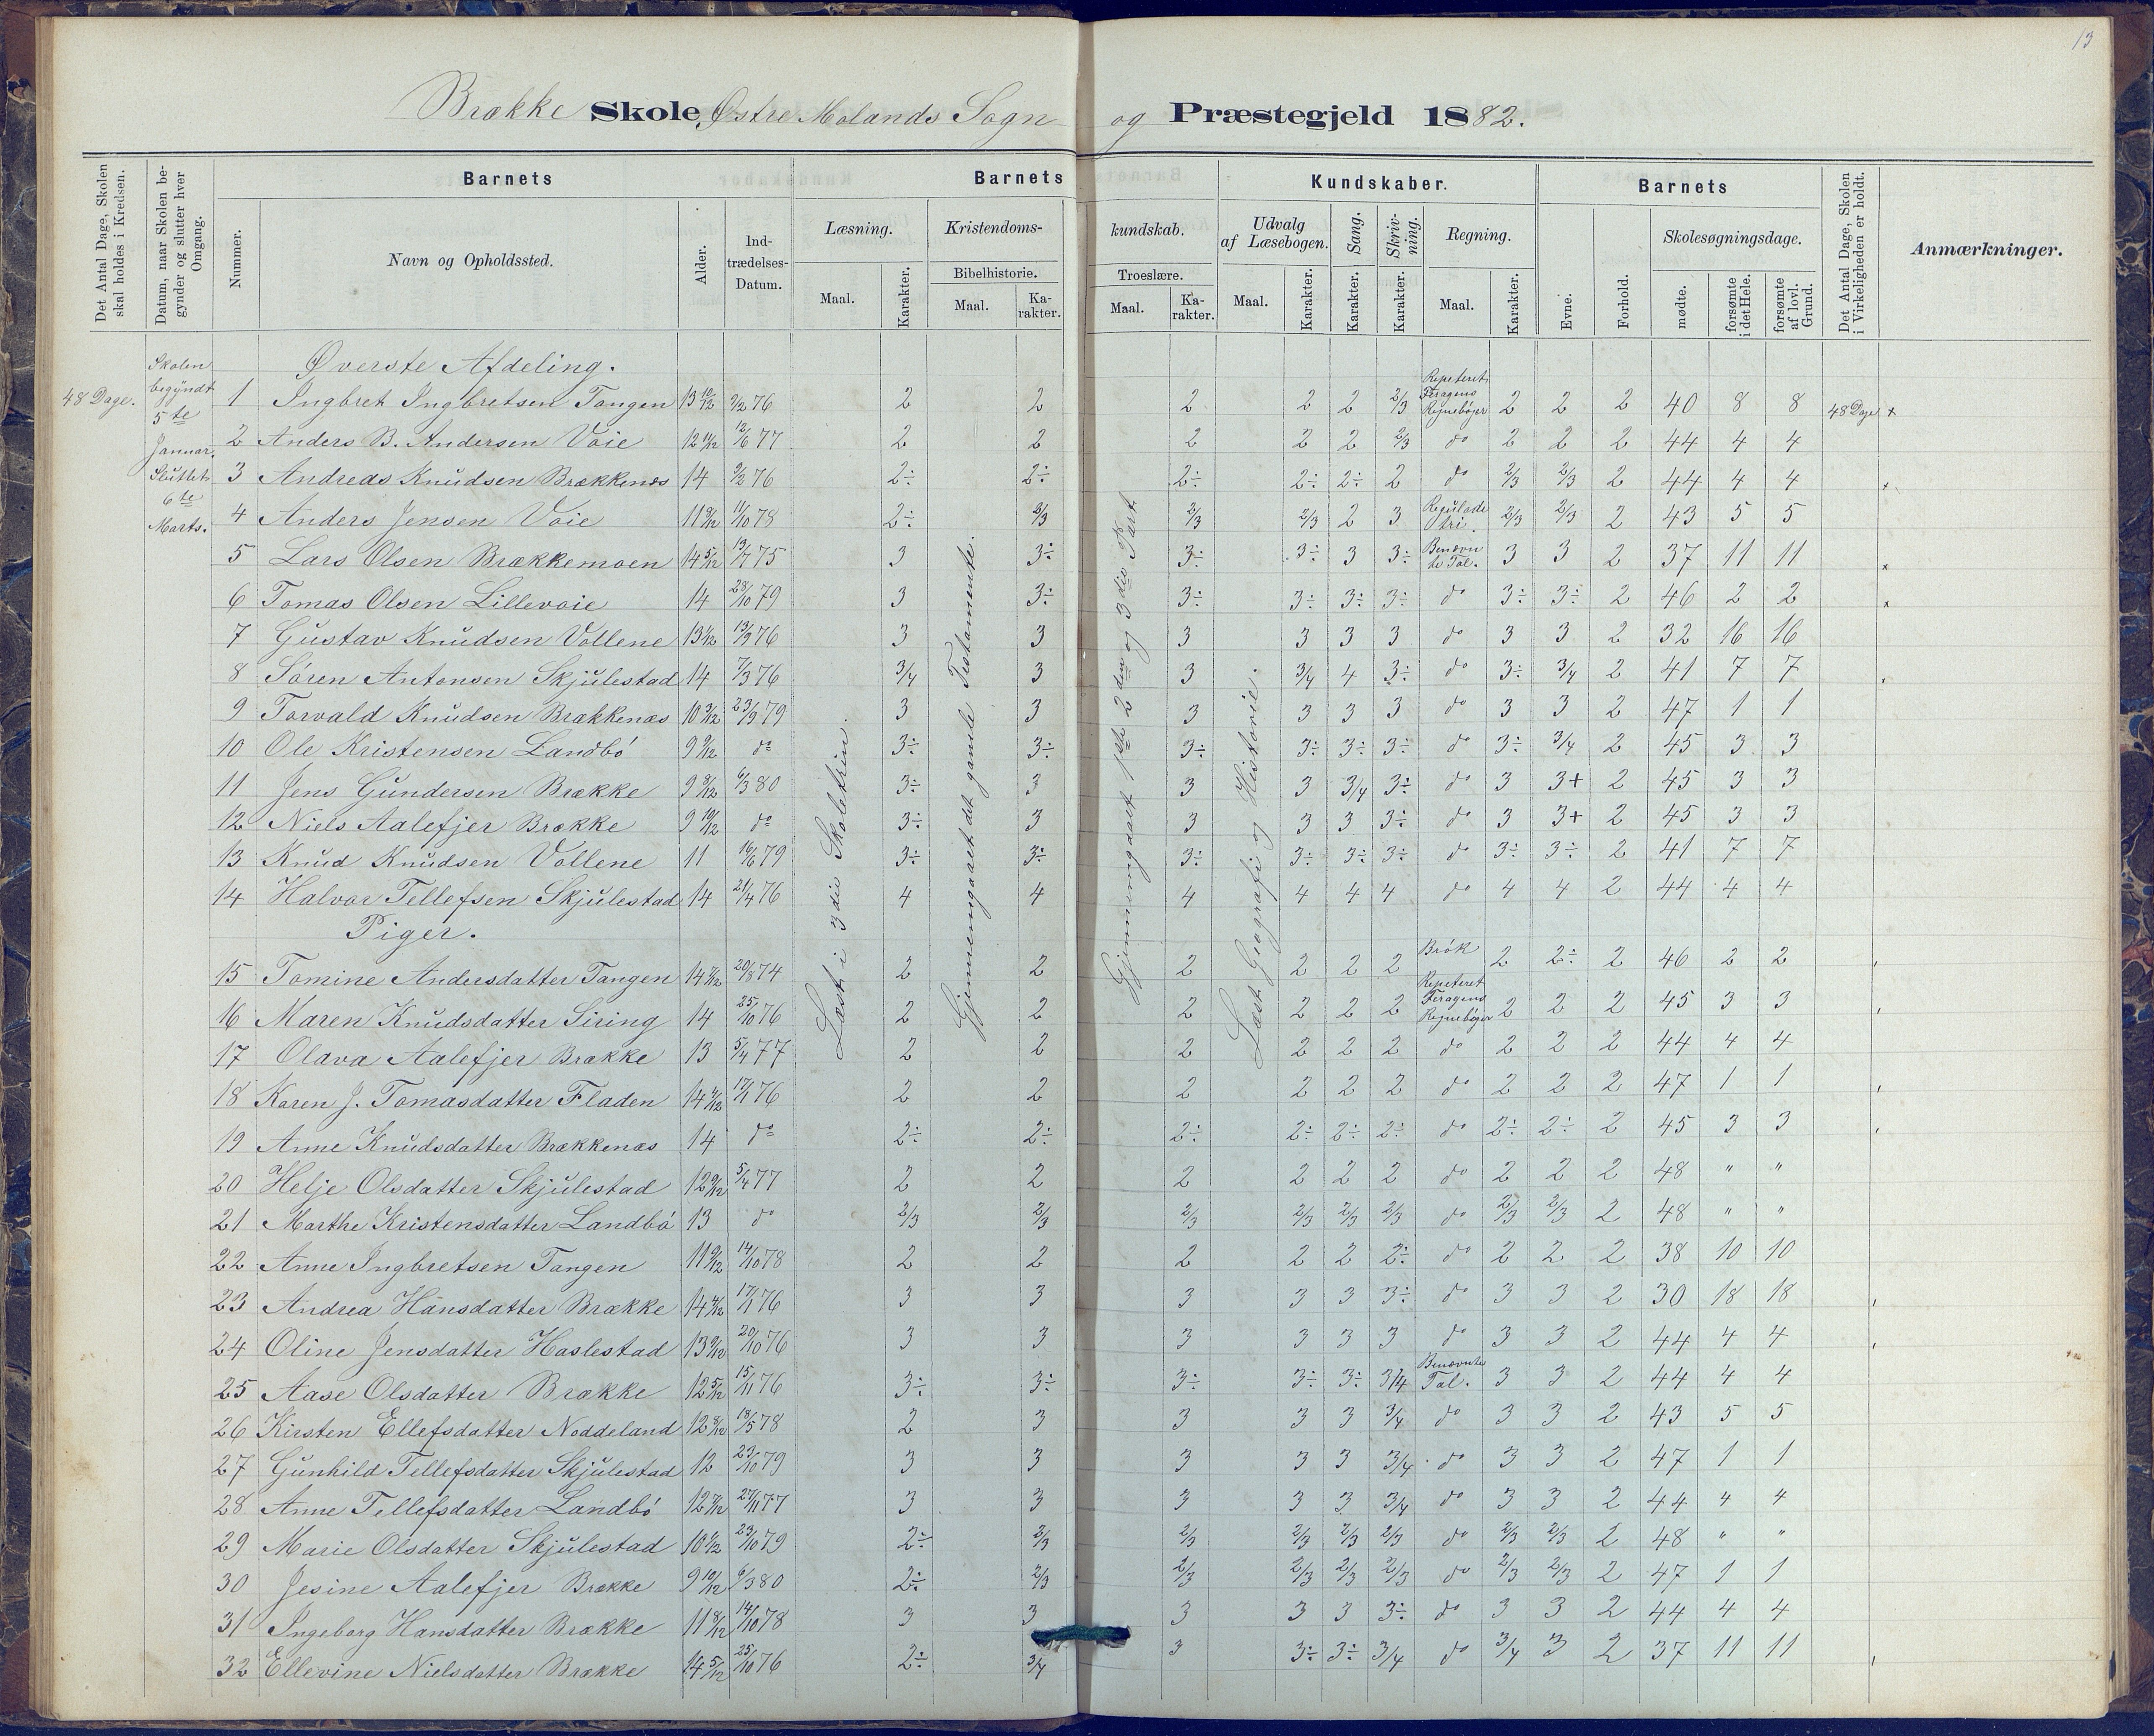 13
Brække Skole, Østre Molands Sogn og Præstegjeld 1882.
Det Antal Dage, Skolen skal holdes i Kredsen.
Datum, naar Skolen begynder og slutter hver Omgang.
Barnets
Nummer.
Navn og Opholdssted.
Alder.
Indtrædelses-Datum.
Barnets Kundskaber.
Læsning.
Maal.
Karakter.
Kristendomskundskab.
Bibelhistorie.
Maal.
Karakter.
Troeslære.
Maal.
Karakter.
Udvalg af Læsebogen.
Maal.
Karakter.
Sang.
Karakter.
Skrivning.
Karakter.
Regning.
Maal.
Karakter.
Barnets
Evne.
Forhold.
Skolesøgningsdage.
mødte.
forsømte i det Hele.
forsømte af lovl. Grund.
Det Antal Dage, Skolen i Virkeligheden er holdt.
Anmærkninger.
48 Dage.
Skolen begyndt 5te Januar. Sluttet 6te Marts.
Læst i 3die Skoletrin.
Gjennemgaaet det gamle Testamente.
Gjennemgaaet 1ste 2den og 3die Part
Læst Geografi og Historie.
Øverste Afdeling.
1 Ingbret Ingbretsen Tangen 13 10/12 9/2 76 2 2 2 2 2 2/3 Repeteret Feragens Regnebøger 2 2 2 40 8 8 48 Dage x
2 Anders B. Andersen Voie 12 11/12 12/6 77 2 2 2 2 2 2/3 do 2 2 2 44 4 4
3 Andreas Knudsen Brækkenæs 14 9/2 76 2÷ 2÷ 2÷ 2÷ 2÷ 2 do 2/3 2/3 2 44 4 4 x
4 Anders Jensen Voie 11 9/12 11/10 78 2÷ 2/3 2/3 2/3 2 3 Reguladetri 2/3 2/3 2 43 5 5
5 Lars Olsen Brækkemoen 14 5/12 13/7 75 3 3÷ 3÷ 3÷ 3 3÷ Benævnte Tal. 3 3 2 37 11 11 x
6 Tomas Olsen Lillevoie 14 28/10 79 3 3÷ 3÷ 3÷ 3÷ 3÷ do 3÷ 3÷ 2 46 2 2 x
7 Gustav Knudsen Vollene 13 1/12 13/9 76 3 3 3 3 3 3 do 3 3 2 32 16 16
8 Søren Antonsen Skjulestad 14 7/3 76 3/4 3 3 3/4 4 3÷ do 3÷ 3/4 2 41 7 7
9 Torvald Knudsen Brækkenæs 10 3/12 23/9 79 3 3 3 3 3 3 do 3 3 2 47 1 1
10 Ole Kristensen Landbö 9 9/12 do 3÷ 3÷ 3÷ 3÷ 3÷ 3÷ do 3÷ 3/4 2 45 3 3
11 Jens Gundersen Brække 9 8/12 6/3 80 3÷ 3 3 3 3/4 3÷ do 3 3+ 2 45 3 3
12 Niels Aalefjer Brække 9 10/12 do 3÷ 3 3 3 3 3÷ do 3 3+ 2 45 3 3
13 Knud Knudsen Vollene 11 16/6 79 3÷ 3÷ 3÷ 3÷ 3÷ 3÷ do 3÷ 3÷ 2 41 7 7
14 Halvor Tellefsen Skjulestad 14 21/4 76 4 4 4 4 4 4 do 4 4 2 44 4 4
Piger.
15 Tomine Andersdatter Tangen 14 7/12 20/8 74 2 2 2 2 2 2 Brök 2 2÷ 2 46 2 2
16 Maren Knudsdatter Siring 14 25/10 76 2 2 2 2 2 2 Repeteret Feragens Regnebøger 2 2 2 45 3 3
17 Olava Aalefjer Brække 13 5/4 77 2 2 2 2 2 2 do 2 2 2 44 4 4
18 Karen J. Tomasdatter Fladen 14 4/12 17/1 76 2 2 2 2 2 2 do 2 2 2 47 1 1
19 Anne Knudsdatter Brækkenæs 14 do 2÷ 2÷ 2÷ 2÷ 2÷ 2÷ do 2÷ 2÷ 2 45 3 3
20 Helje Olsdatter Skjulestad 12 9/12 5/4 77 2 2 2 2 2 2 do 2 2 2 48 " "
21 Marthe Kristensdatter Landbö 13 do 2/3 2/3 2/3 2/3 2/3 2/3 do 2/3 2/3 2 48 " "
22 Anne Ingbretsen Tangen 11 9/12 14/10 78 2 2 2 2 2 2÷ do 2 2 2 38 10 10
23 Andrea Hansdatter Brække 14 4/12 17/1 76 3 3 3 3 3 3÷ do 3 3 2 30 18 18
24 Oline Jensdatter Haslestad 13 9/12 20/10 76 3 3 3 3 3 3 do 3 3 2 44 4 4
25 Aase Olsdatter Brække 12 5/12 15/11 76 3÷ 3÷ 3÷ 3÷ 3÷ 3/4 Benævnte Tal. 3 3 2 44 4 4
26 Kirsten Ellefsdatter Noddeland 12 8/12 18/5 78 2 3 3 3 3 3/4 do 3 3 2 43 5 5
27 Gunhild Tellefsdatter Skjulestad 12 23/10 79 3 3 3 3 3 3/4 do 3 3 2 47 1 1
28 Anne Tellefsdatter Landbö 12 7/12 27/11 77 3 3 3 3 3 3/4 do 3 3 2 44 4 4
29 Marie Olsdatter Skjulestad 10 1/12 23/10 79 2÷ 2/3 2/3 2/3 2/3 2/3 do 2/3 2/3 2 48 " "
30 Jesine Aalefjer Brække 9 10/12 6/3 80 2÷ 2/3 2/3 2/3 2/3 2/3 do 2/3 2/3 2 47 1 1
31 Ingeborg Hansdatter Brække 11 8/12 14/10 78 3 3 3 3 3 3÷ do 3 3 2 44 4 4
32 Ellevine Nielsdatter Brække 14 5/12 25/10 76 2÷ 3/4 3 3÷ 3÷ 3/4 do 3/4 3 2 37 11 11